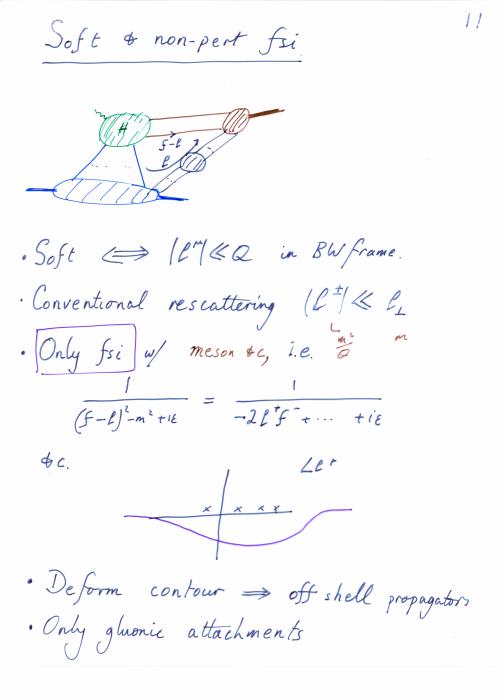 11
Soft & non-pert fsi
H
f-l
l
• Soft ⟺ |l^m| ≪ Q in BW frame.
• Conventional rescattering |l^±| ≪ l_⊥
m²/Q m
• Only fsi w/ meson &c, i.e.
1/((f-l)²-m²+iε) = 1/(-2l⁺f⁻+⋯ +iε)
&c. ∠l⁺
x x x x
• Deform contour ⟹ off shell propagators
• Only gluonic attachments